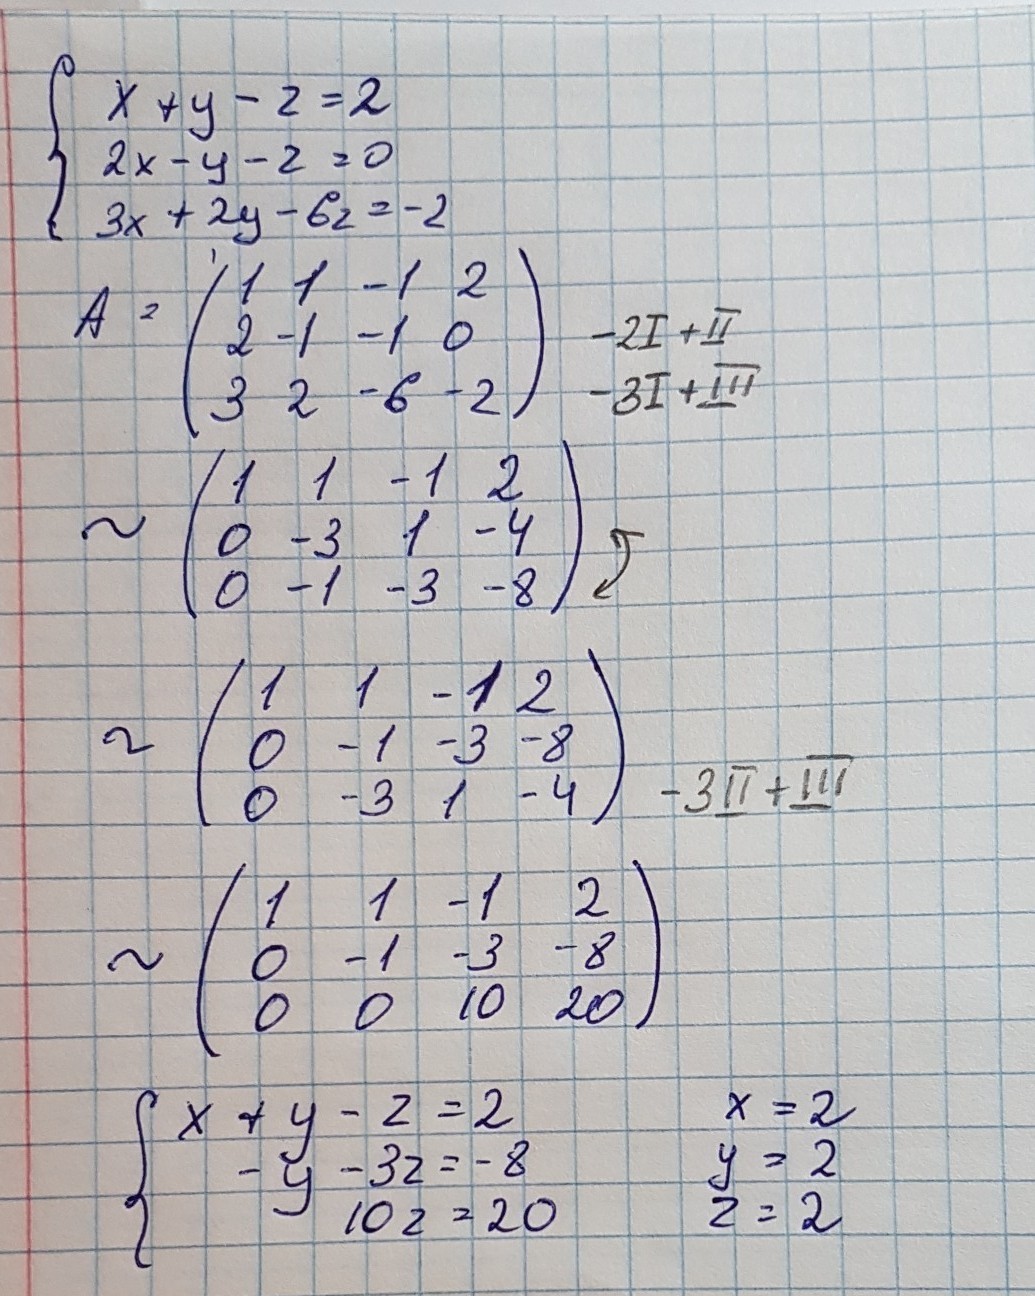 x + y - z = 2
2x - y - z = 0
3x + 2y - 6z = -2
A = ( 1 1 -1 2
2 -1 -1 0 ) -2I + II
3 2 -6 -2 -3I + III
1 1 -1 2
~ ( 0 -3 1 -4 )
0 -1 -3 -8
1 1 -1 2
~ ( 0 -1 -3 -8 )
0 -3 1 -4 -3II + III
1 1 -1 2
~ ( 0 -1 -3 -8 )
0 0 10 20
x + y - z = 2 x = 2
-y - 3z = -8 y = 2
10z = 20 z = 2